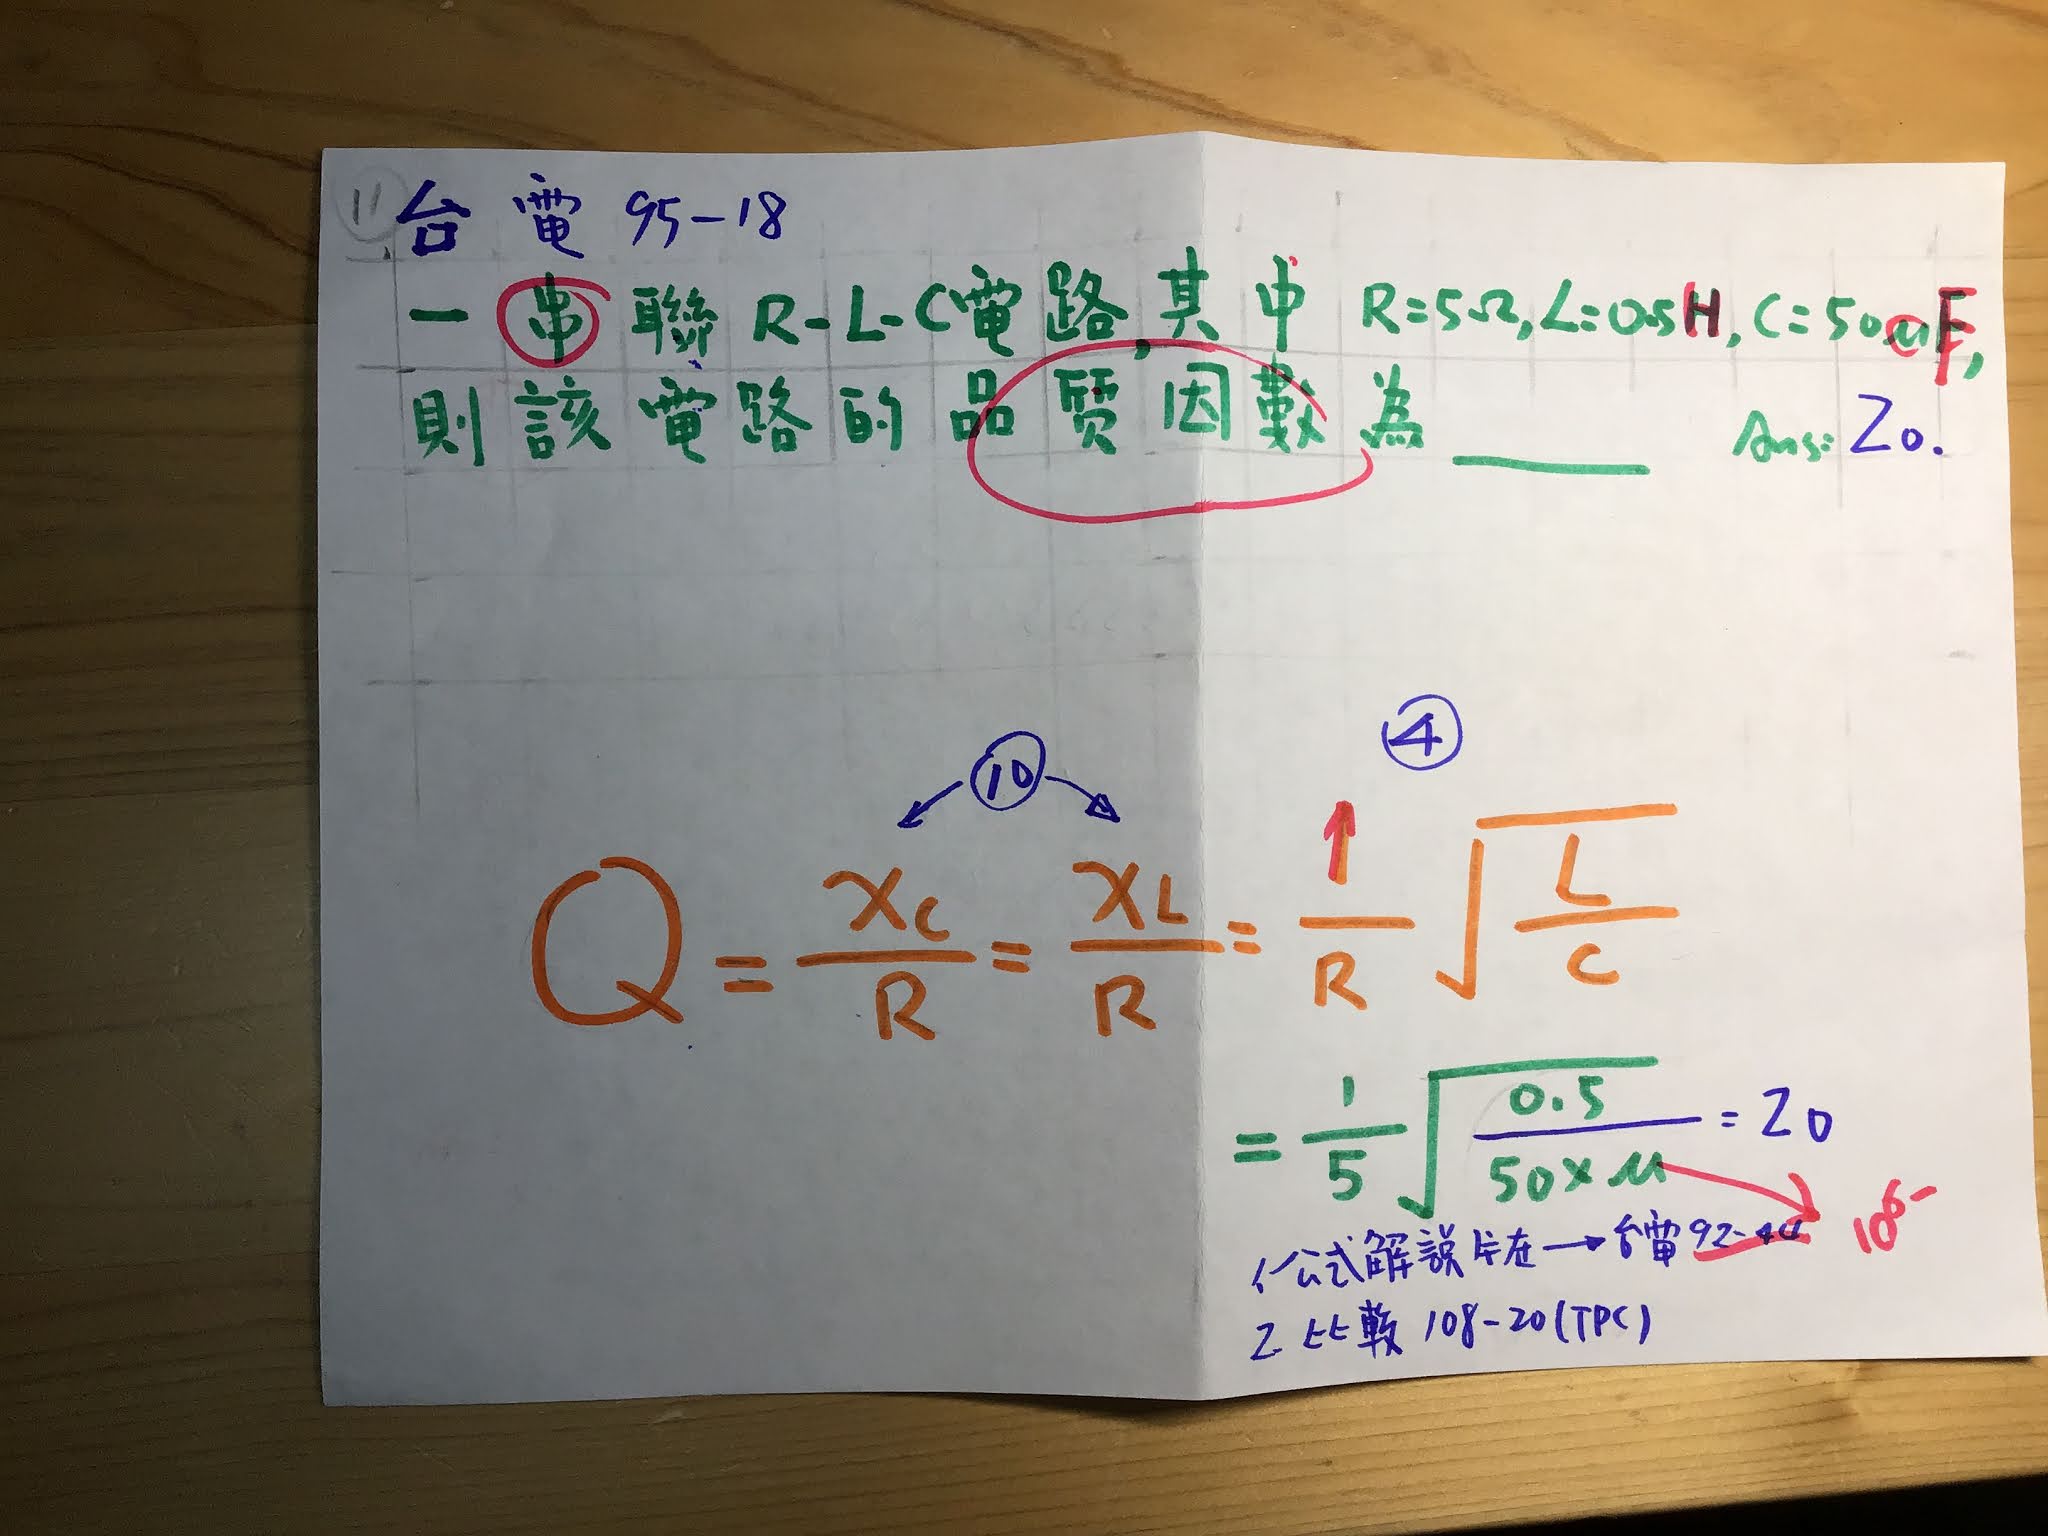 11 台電 95-18
一串聯R-L-C電路,其中 R=5Ω, L=0.5H, C=50μF,
則該電路的品質因數為______ Ans: 20.
10 4
Q = XC/R = XL/R = 1/R √(L/C)
= 1/5 √(0.5/(50×μ)) = 20
10⁶⁻
1、公式解說步在→台電92-40
2、比較 108-20(TPC)